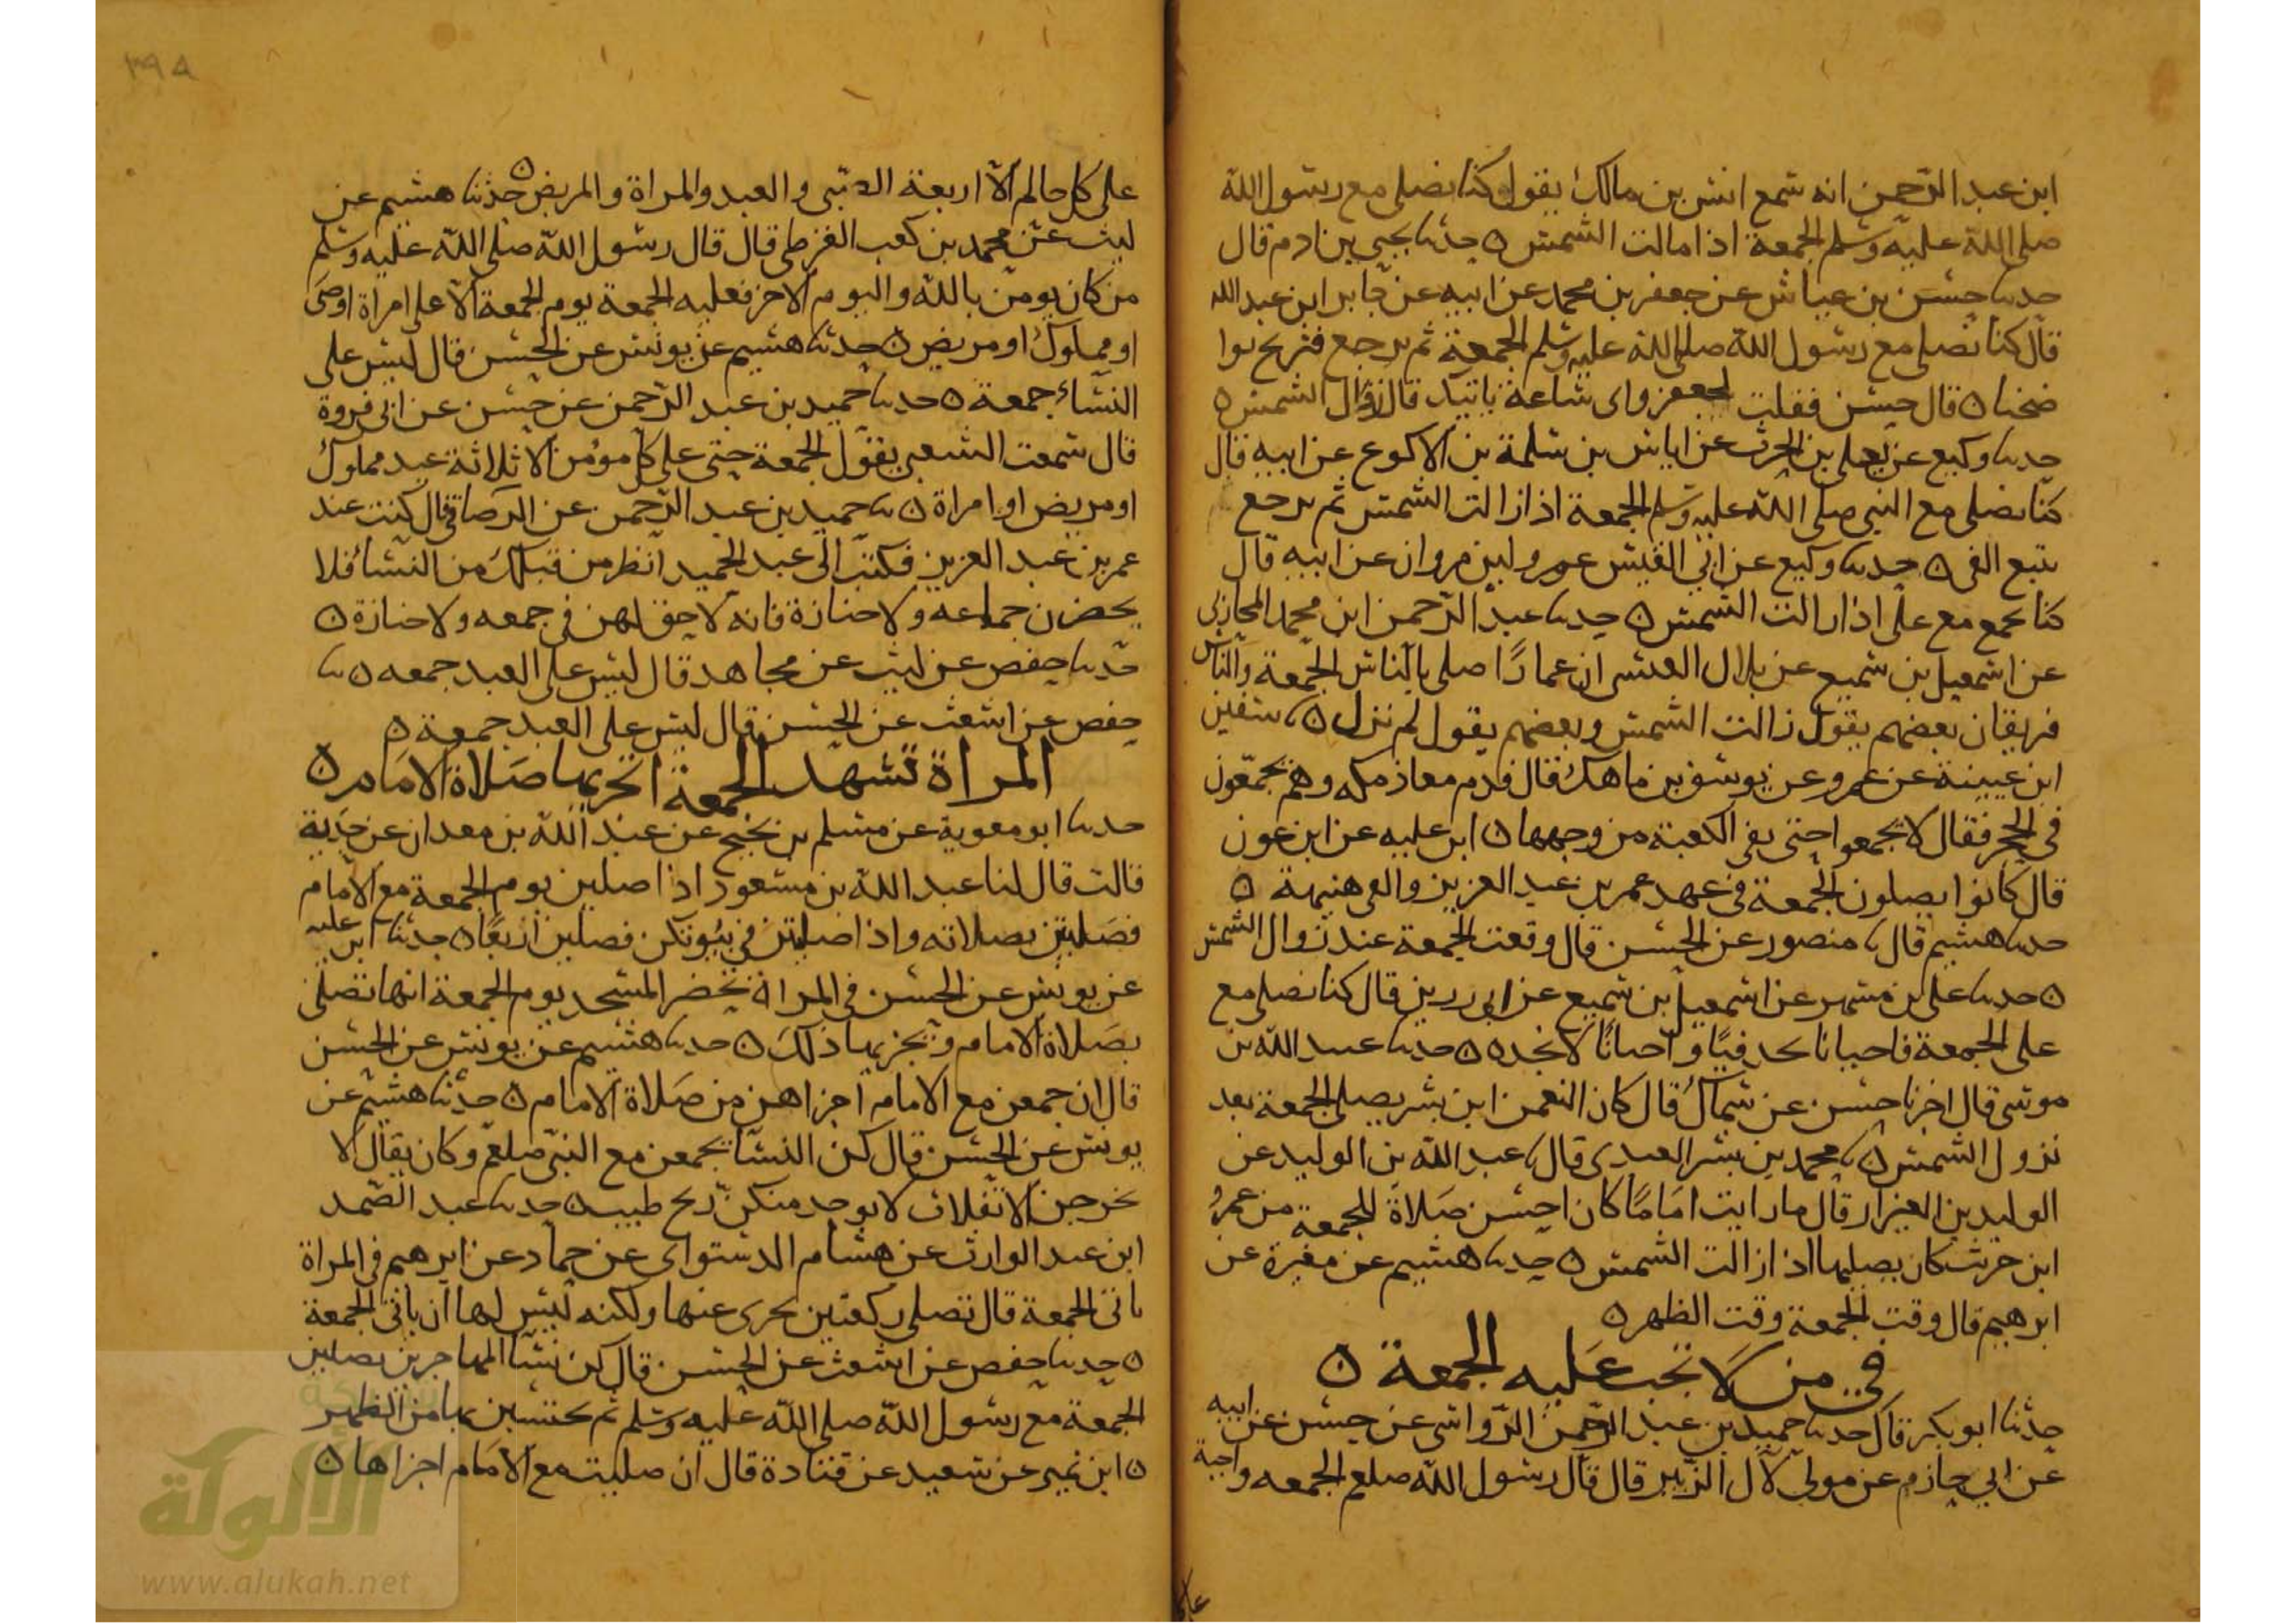 ابن عبد الرحمن انه سمع انس بن مالك يقول كنا نصلي مع رسول الله
صلى الله عليه وسلم الجمعة اذا مالت الشمس ه حدثنا يحيى بن ادم قال
حدثنا حسن بن عياش عن جعفر بن محمد عن ابيه عن جابر ابن عبد الله
قال كنا نصلي مع رسول الله صلى الله عليه وسلم الجمعة ثم نرجع فنريح نوا
ضحنا ه قال حسن فقلت لجعفر واي ساعة تاتيك قال زوال الشمس ه
حدثنا وكيع عن يعلى بن الحرث عن اياس بن سلمة بن الاكوع عن ابيه قال
كنا نصلي مع النبي صلى الله عليه وسلم الجمعة اذا زالت الشمس ثم نرجع
نتبع الفى ه حدثنا وكيع عن ابي القيس عمرو ابن مروان عن ابيه قال
كنا نجمع مع علي اذا زالت الشمس ه حدثنا عبد الرحمن ابن محمد المحاربي
عن اسمعيل بن سميع عن بلال العبسي ان عمارا صلى بالناس الجمعة والناس
فريقان بعضهم يقول زالت الشمس وبعضهم يقول لم تزل ه ثنا سفين
ابن عيينة عن عمرو عن يوسف بن ماهك قال قدم معاذ مكه وهم يجمعون
في الحجر فقال لا تجمعوا حتى يفي الكعبة من وجهها ه ابن عليه عن ابن عون
قال كانوا يصلون الجمعة في عهد عمر بن عبد العزيز والفي هنيهة ه
حدثنا هشيم قال ثنا منصور عن الحسن قال وقعت الجمعة عند زوال الشمس
ه حدثنا علي بن مسهر عن اسمعيل بن سميع عن ابي رزين قال كنا نصلي مع
علي الجمعة فاحيانا نجد فيا واحيانا لا نجده ه حدثنا عبيد الله بن
موسى قال اخبرنا حسن عن سماك قال كان النعمن ابن بشير يصلي الجمعة بعد
نزول الشمس ه ثنا محمد بن بشر العبدي قال ثنا عبد الله بن الوليد عن
الوليد بن العيزار قال ما رايت اماما كان احسن صلاة للجمعة من عمرو
ابن حريث كان يصليها اذا زالت الشمس ه حدثنا هشيم عن مغيرة عن
ابرهيم قال وقت الجمعة وقت الظهر ه
في من لا تجب عليه الجمعة ه
حدثنا ابو بكر قال حدثنا حميد بن عبد الرحمن الرواسي عن حسن عن ابيه
عن ابي حازم عن مولى لآل الزبير قال قال رسول الله صلعم الجمعه واجبة
على
٣٩٨
على كل حالم الا اربعة الصبي والعبد والمراة والمريض ه حدثنا هشيم عن
ليث عن محمد بن كعب القرظي قال قال رسول الله صلى الله عليه وسلم
من كان يومن بالله واليوم الاخر فعليه الجمعة يوم الجمعة الا على امراة او صبي
او مملوك او مريض ه حدثنا هشيم عن يونس عن الحسن قال ليس على
النساء جمعة ه حدثنا حميد بن عبد الرحمن عن حسن عن ابي فروة
قال سمعت الشعبي يقول الجمعة حتى على كل مومن الا ثلاثة عبد مملوك
او مريض او امراة ه ثنا حميد بن عبد الرحمن عن الرصافي قال كنت عند
عمر بن عبد العزيز فكتب الى عبد الحميد انظر من قبلك من النساء فلا
يحضرن جماعه ولا جنازة فانه لا حق لهن في جمعه ولا جنازة ه
حدثنا حفص عن ليث عن مجاهد قال ليس على العبد جمعه ه ثنا
حفص عن اشعث عن الحسن قال ليس على العبد جمعة ه
المراة تشهد الجمعة اتجزيها صلاة الامام ه
حدثنا ابو معوية عن مسلم بن نجيح عن عبد الله بن معدان عن جدته
قالت قال لنا عبد الله بن مسعود اذا صليتن يوم الجمعة مع الامام
فصلين بصلاته واذا صليتن في بيوتكن فصلين اربعا ه حدثنا ابن عليه
عن يونس عن الحسن في المراة تحضر المسجد يوم الجمعة انها تصلي
بصلاة الامام وتجزيها ذلك ه حدثنا هشيم عن يونس عن الحسن
قال ان جمعن مع الامام اجزاهن من صلاة الامام ه حدثنا هشيم عن
يونس عن الحسن قال كن النسا يجمعن مع النبي صلعم وكان يقال لا
تخرجن الا تفلات لا يوجد منكن ريح طيب ه حدثنا عبد الصمد
ابن عبد الوارث عن هشام الدستواي عن حماد عن ابرهيم في المراة
تاتي الجمعة قال تصلي ركعتين يجزي عنها ولكنه ليس لها ان تاتي الجمعة
ه حدثنا حفص عن اشعث عن الحسن قال كن نسا المهاجرين يصلين
الجمعة مع رسول الله صلى الله عليه وسلم ثم يحتسبن بها من الظهر
ه ابن نمير عن سعيد عن قتادة قال ان صليت مع الامام اجزاها ه
شبكة
الألوكة
www.alukah.net